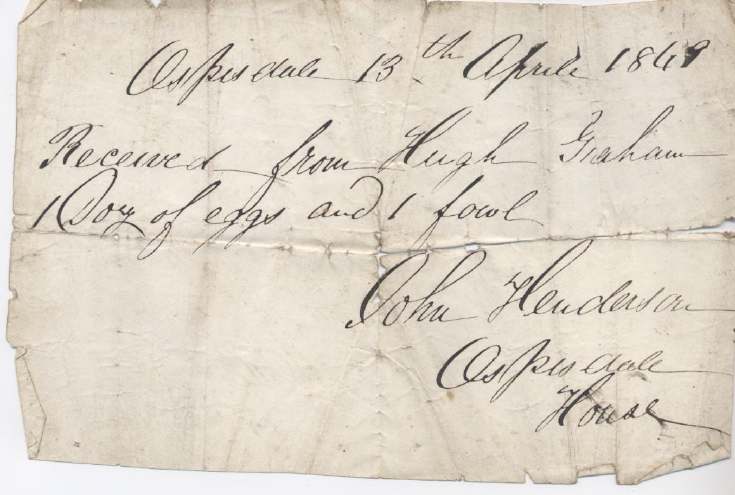 Ospisdale 13th Aprile 1849
Received from Hugh Graham
1 Doz of eggs and 1 fowl
John Henderson
Ospisdale
House